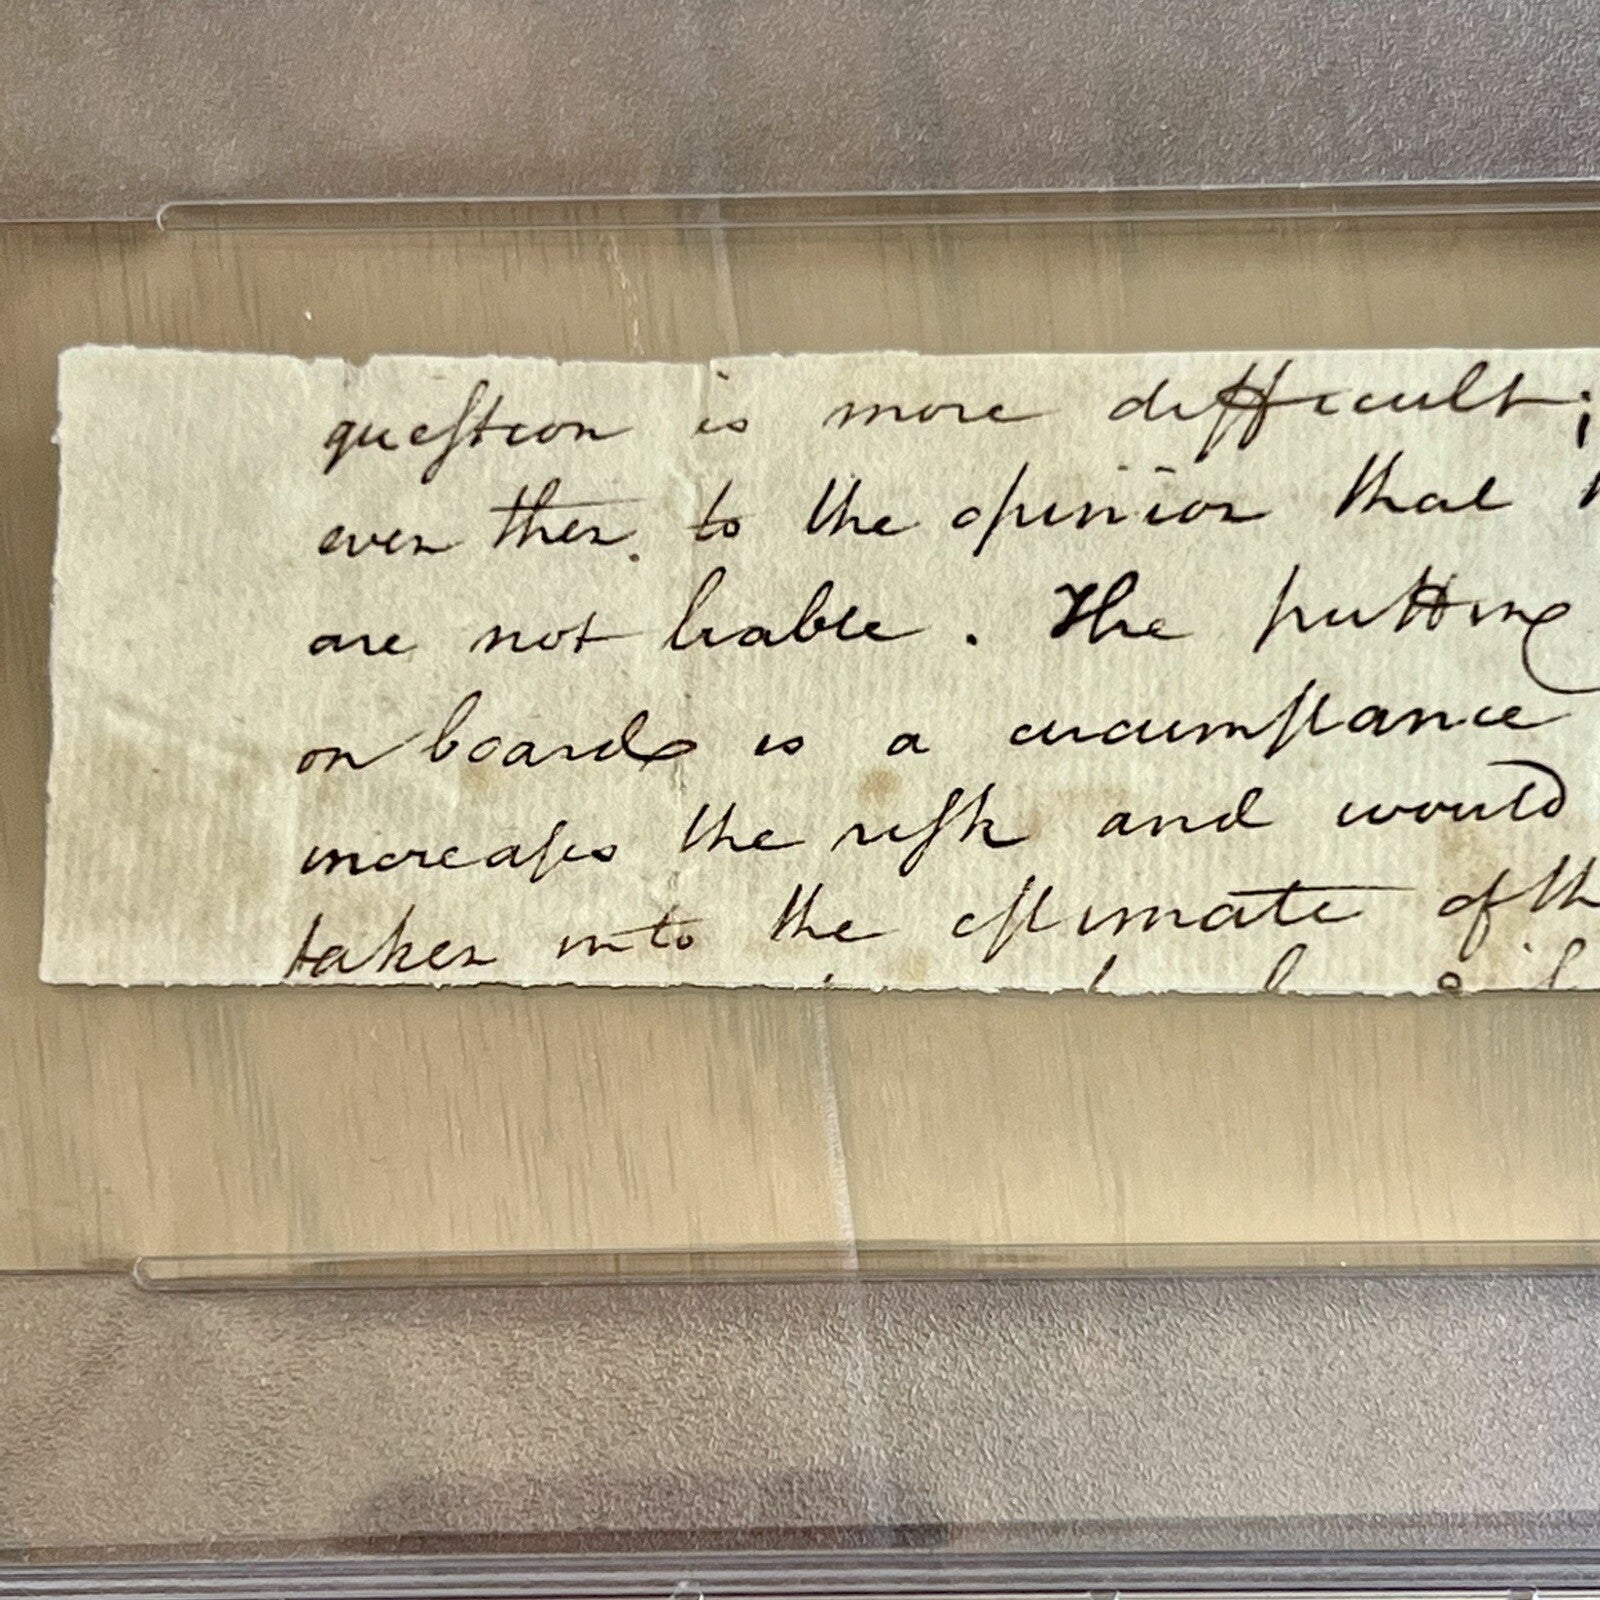 queſtion is more difficult;
even then. to the opinion that
are not liable. The putting
on board is a circumſtance
increaſes the riſk and would
taken into the eſtimate of th